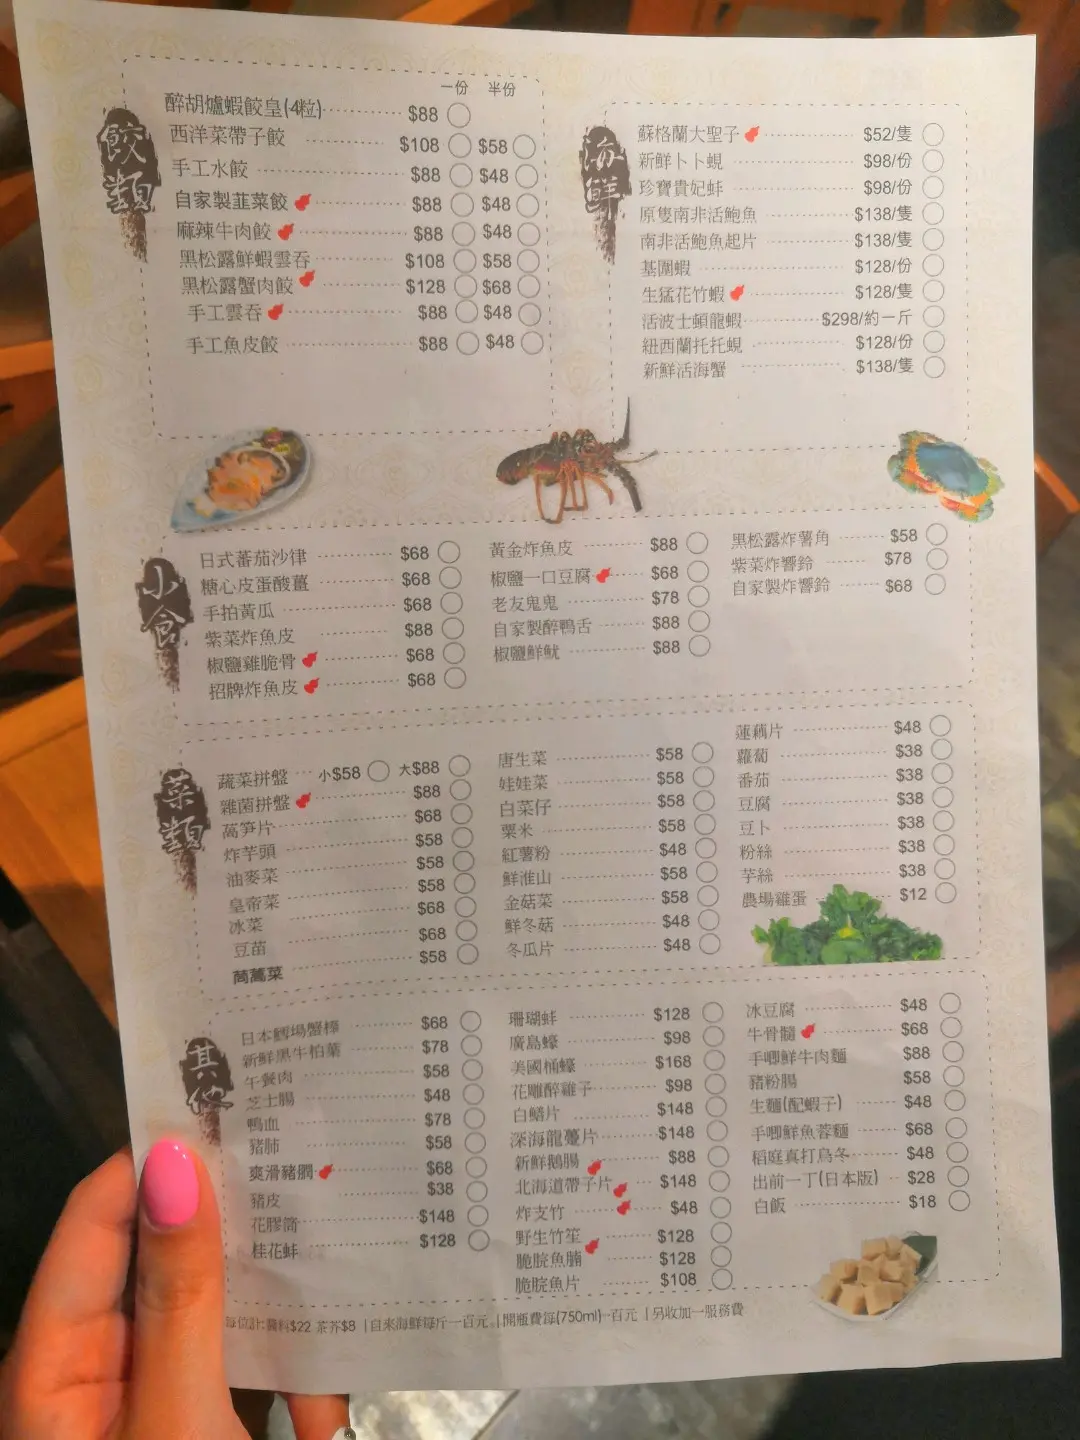 餃類
一份 半份
醉胡爐蝦餃皇(4粒) $88
西洋菜帶子餃 $108 $58
手工水餃 $88 $48
自家製韮菜餃 $88 $48
麻辣牛肉餃 $88 $48
黑松露鮮蝦雲吞 $108 $58
黑松露蟹肉餃 $128 $68
手工雲吞 $88 $48
手工魚皮餃 $88 $48
海鮮
蘇格蘭大聖子 $52/隻
新鮮卜卜蜆 $98/份
珍寶貴妃蚌 $98/份
原隻南非活鮑魚 $138/隻
南非活鮑魚起片 $138/隻
基圍蝦 $128/份
生猛花竹蝦 $128/隻
活波士頓龍蝦 $298/約一斤
紐西蘭托托蜆 $128/份
新鮮活海蟹 $138/隻
小食
日式蕃茄沙律 $68
糖心皮蛋酸薑 $68
手拍黃瓜 $68
紫菜炸魚皮 $88
椒鹽雞脆骨 $68
招牌炸魚皮 $68
黃金炸魚皮 $88
椒鹽一口豆腐 $68
老友鬼鬼 $78
自家製醉鴨舌 $88
椒鹽鮮魷 $88
黑松露炸薯角 $58
紫菜炸響鈴 $78
自家製炸響鈴 $68
菜類
蔬菜拼盤 小$58 大$88
雜菌拼盤 $88
萵筍片 $68
炸芋頭 $58
油麥菜 $58
皇帝菜 $58
冰菜 $68
豆苗 $68
茼蒿菜 $58
唐生菜 $58
娃娃菜 $58
白菜仔 $58
粟米 $58
紅薯粉 $48
鮮淮山 $58
金菇菜 $58
鮮冬菇 $48
冬瓜片 $48
蓮藕片 $48
蘿蔔 $38
番茄 $38
豆腐 $38
豆卜 $38
粉絲 $38
芋絲 $38
農場雞蛋 $12
其他
日本鱈場蟹棒 $68
新鮮黑牛柏葉 $78
午餐肉 $58
芝士腸 $48
鴨血 $78
豬肺 $58
爽滑豬膶 $68
豬皮 $38
花膠筒 $148
桂花蚌 $128
珊瑚蚌 $128
廣島蠔 $98
美國桶蠔 $168
花雕醉雞子 $98
白鱔片 $148
深海龍躉片 $148
新鮮鵝腸 $88
北海道帶子片 $148
炸支竹 $48
野生竹笙 $128
脆脘魚腩 $128
脆脘魚片 $108
冰豆腐 $48
牛骨髓 $68
手唧鮮牛肉麵 $88
豬粉腸 $58
生麵(配蝦子) $48
手唧鮮魚蓉麵 $68
稻庭真打烏冬 $48
出前一丁(日本版) $28
白飯 $18
每位計:醬料$22 茶芥$8 |自來海鮮每斤一百元 |開瓶費每(750ml)一百元 |另收加一服務費